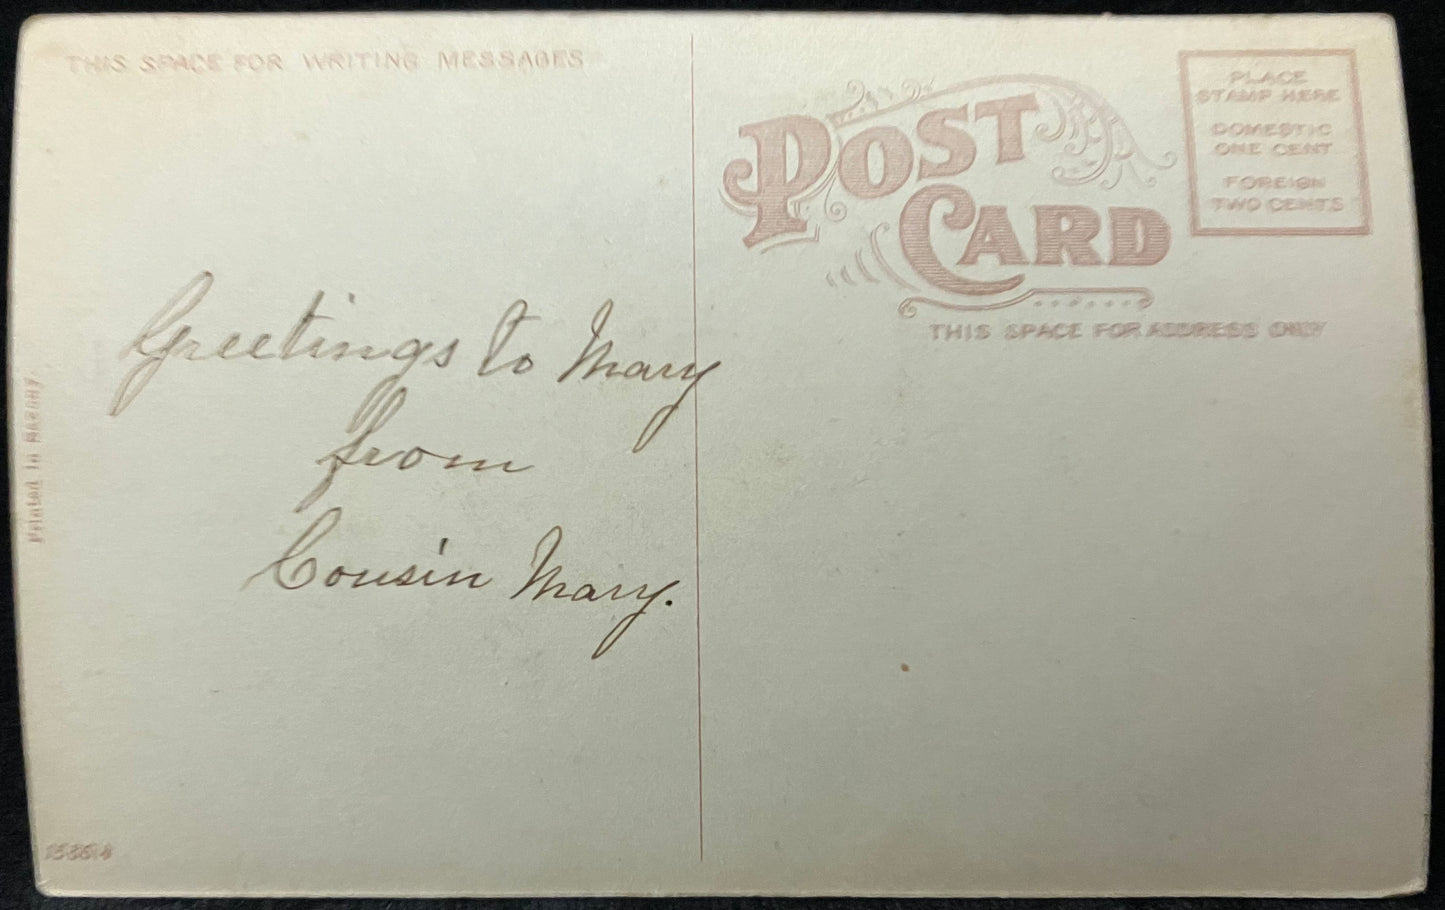 THIS SPACE FOR WRITING MESSAGES
Greetings to Mary
from
Cousin Mary.
Printed in
POST
CARD
THIS SPACE FOR ADDRESS ONLY
PLACE
STAMP HERE
DOMESTIC
ONE CENT
FOREIGN
TWO CENTS